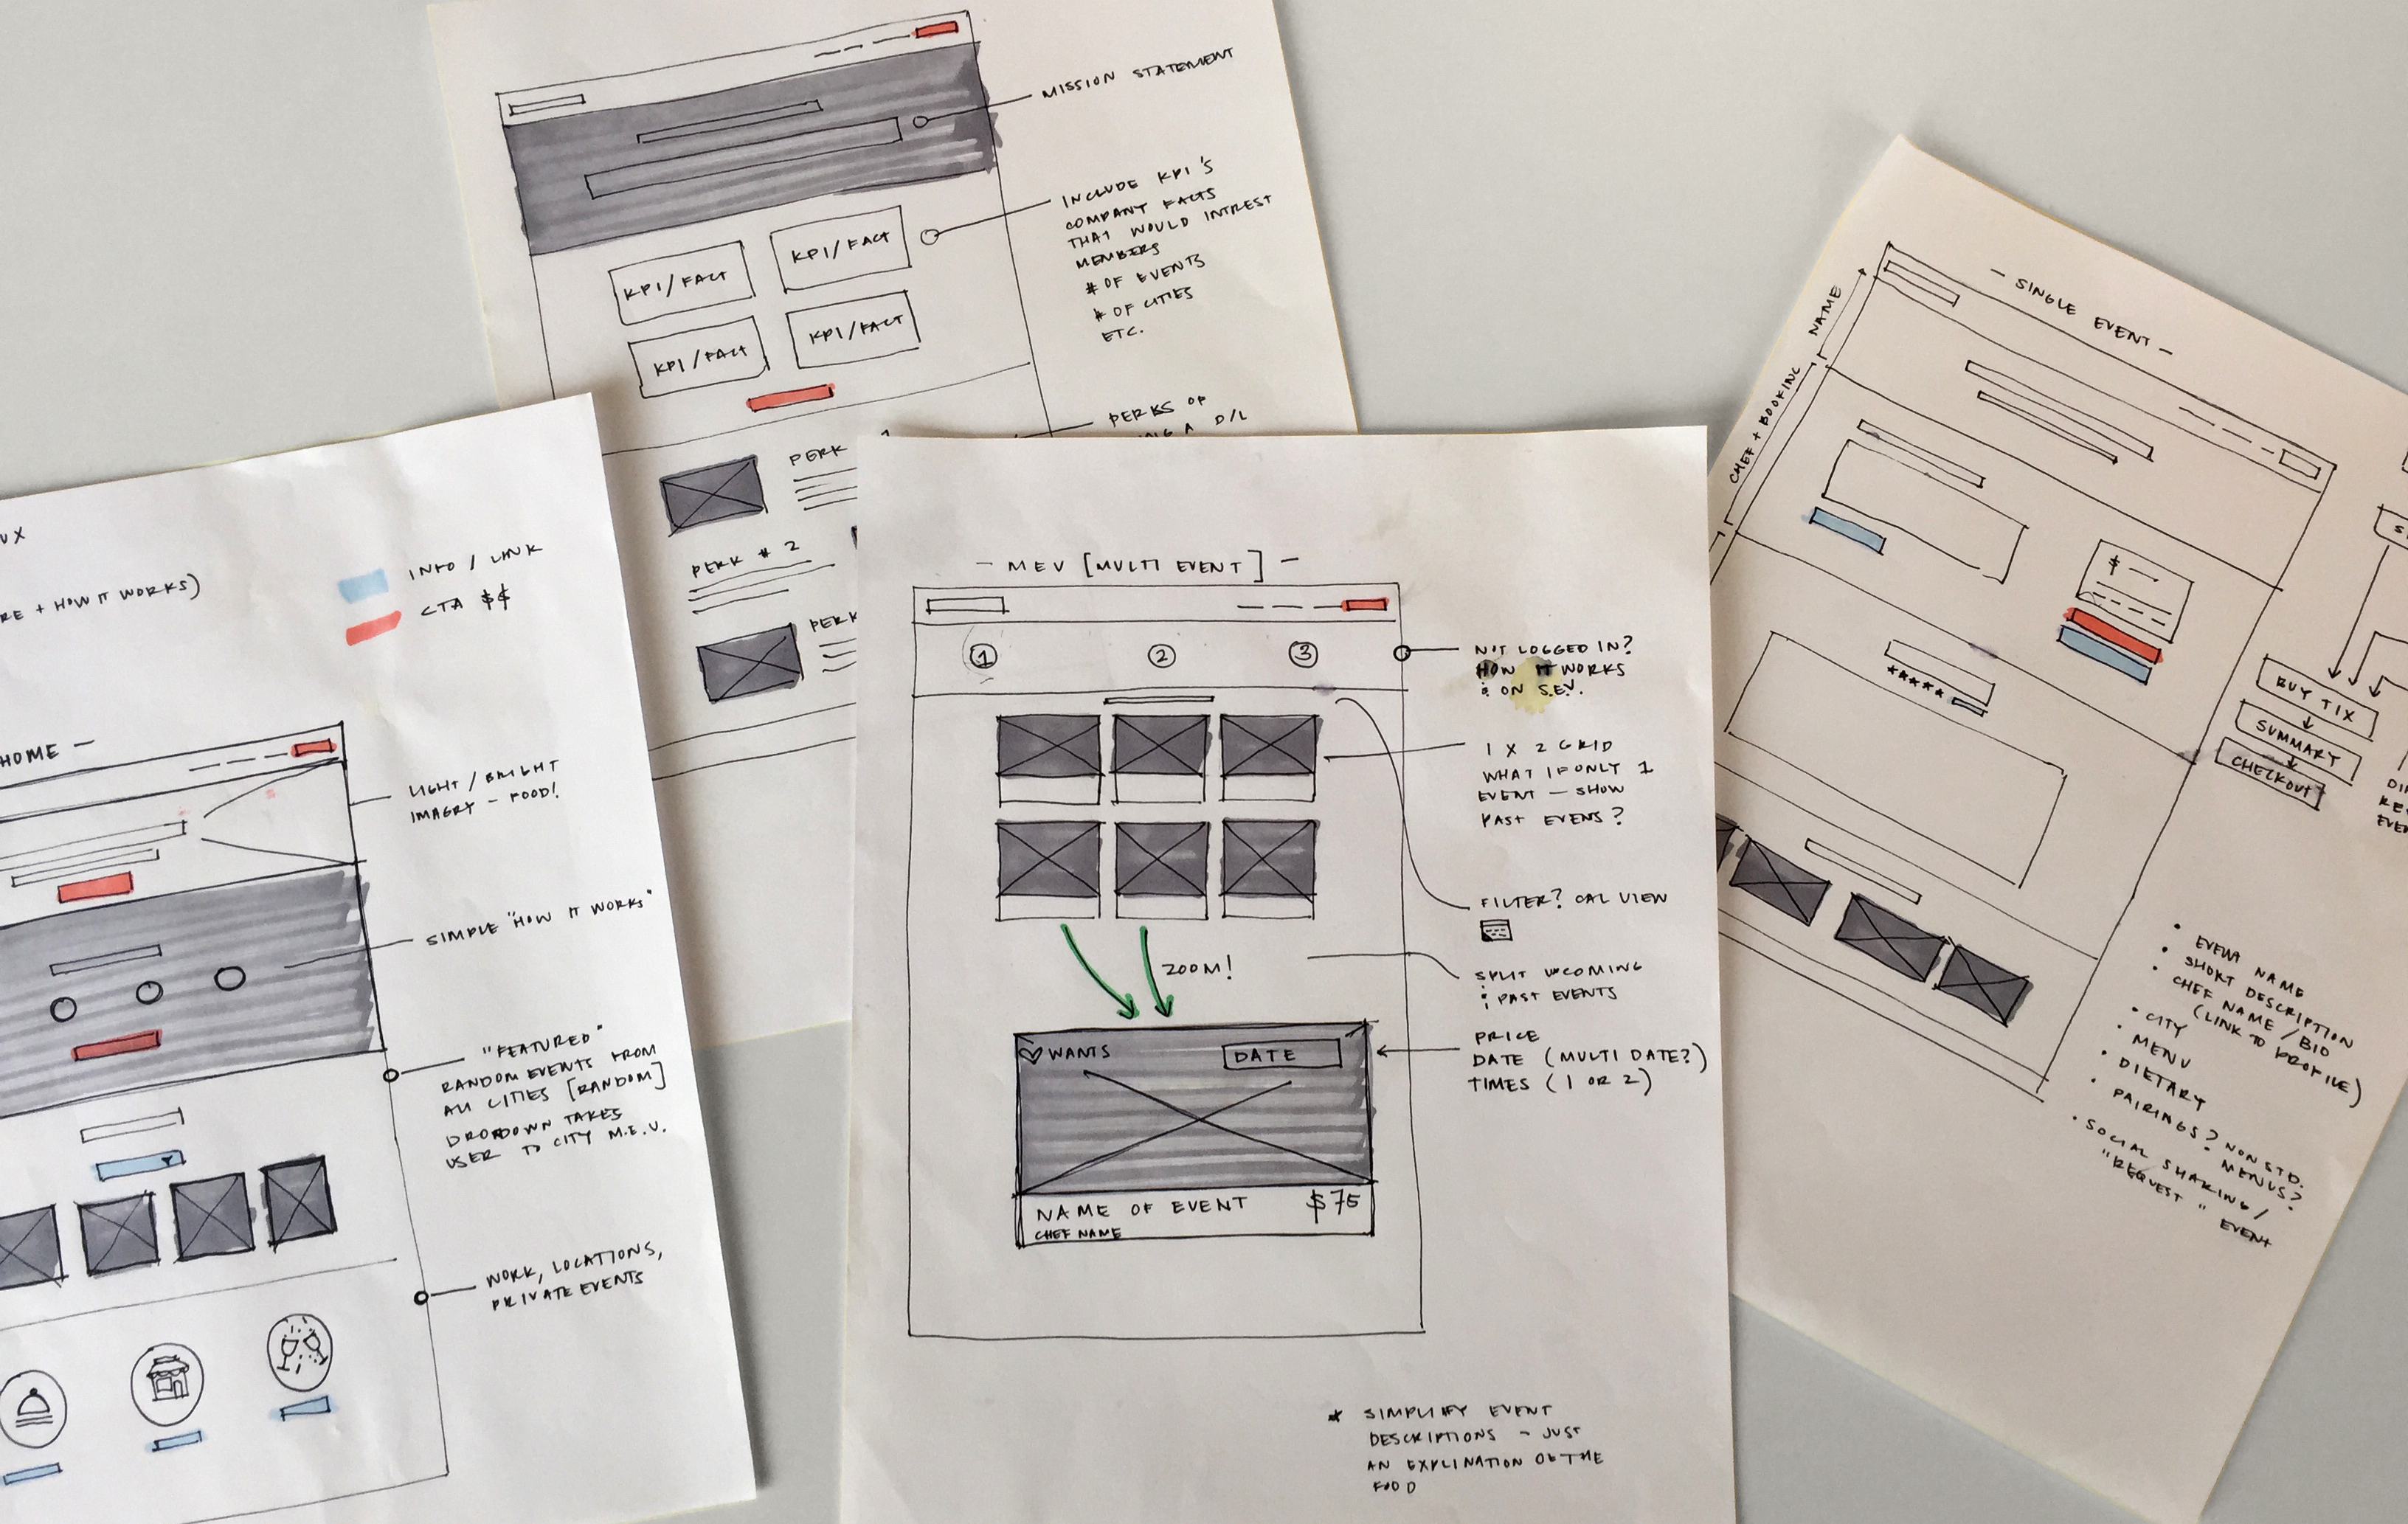 MISSION STATEMENT
INCLUDE KPI'S
COMPANY FACTS
THAT WOULD INTREST
MEMBERS
# OF EVENTS
# OF CITIES
ETC.
KPI/FACT
KPI/FACT
KPI/FACT
KPI/FACT
PERKS OF
A D/L
PERK
PERK # 2
PERK
UX
RE + HOW IT WORKS)
INFO / LINK
CTA $$
HOME —
LIGHT / BRIGHT
IMAGRY — FOOD!
SIMPLE "HOW IT WORKS"
"FEATURED"
RANDOM EVENTS FROM
ALL CITIES [RANDOM]
DROPDOWN TAKES
USER TO CITY M.E.V.
WORK, LOCATIONS,
PRIVATE EVENTS
— MEV [MULTI EVENT] —
1
2
3
NOT LOGGED IN?
HOW IT WORKS
& ON S.E.V.
1 X 2 GRID
WHAT IF ONLY 1
EVENT — SHOW
PAST EVENS?
FILTER? CAL VIEW
ZOOM!
SPLIT UPCOMING
& PAST EVENTS
PRICE
DATE (MULTI DATE?)
TIMES (1 OR 2)
WANTS
DATE
NAME OF EVENT $75
CHEF NAME
* SIMPLIFY EVENT
DESCRIPTIONS - JUST
AN EXPLINATION OF THE
FOOD
— SINGLE EVENT —
NAME
CHEF + BOOKING
$ —
★★★★★
BUY TIX
SUMMARY
CHECKOUT
• EVENT NAME
• SHORT DESCRIPTION
• CHEF NAME / BIO
(LINK TO PROFILE)
• CITY
• MENU
• DIETARY
• PAIRINGS? NON STD.
MENUS?
• SOCIAL SHARING /
"REQUEST" EVENT